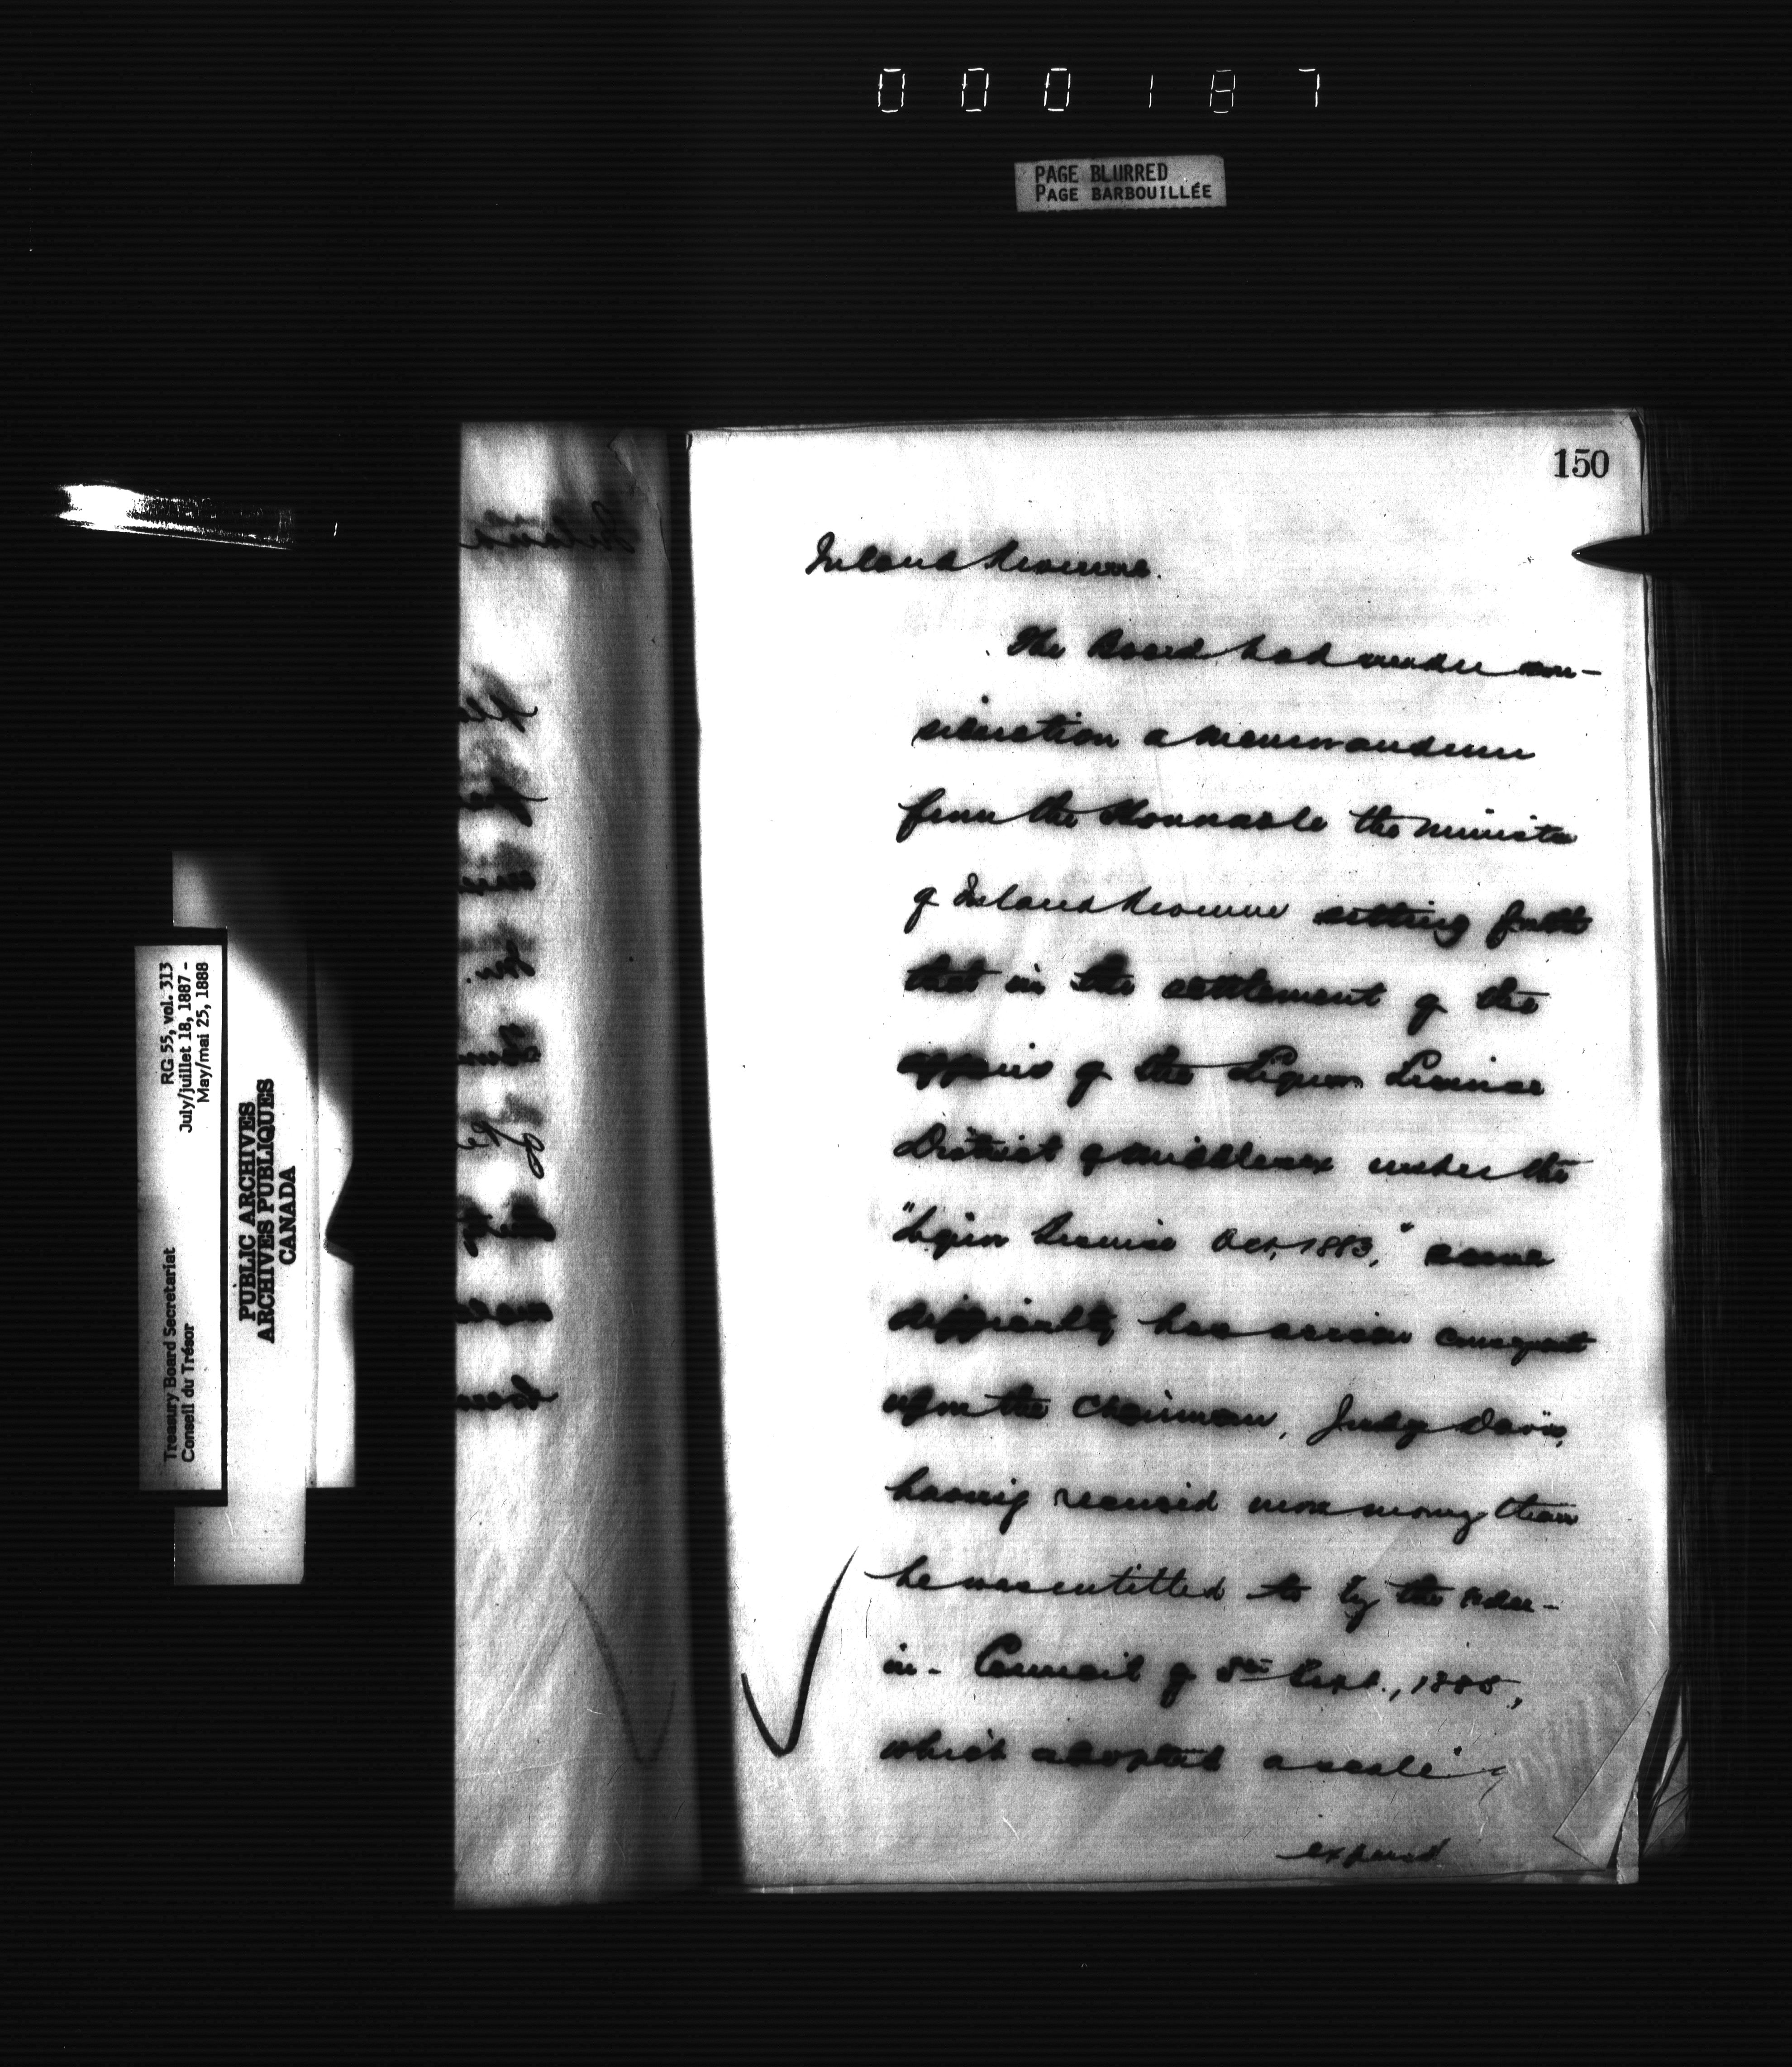 000187
PAGE BLURRED
PAGE BARBOUILLÉE
150
Inland Revenue.
The Board had under con-
sideration a memorandum
from the Honorable the Minister
of Inland Revenue setting forth
that in the settlement of the
affairs of the Liquor License
District of Middlesex under the
"Liquor License Act, 1883," some
difficulty has arisen consequent
upon the Chairman, Judge Davis,
having received more money than
he was entitled to by the Order-
in-Council of 8th Sept., 1885,
which adopted a scale
expend
RG 55, vol. 313
July/juillet 18, 1887 -
May/mai 25, 1888
Treasury Board Secretariat
Conseil du Trésor
PUBLIC ARCHIVES
ARCHIVES PUBLIQUES
CANADA